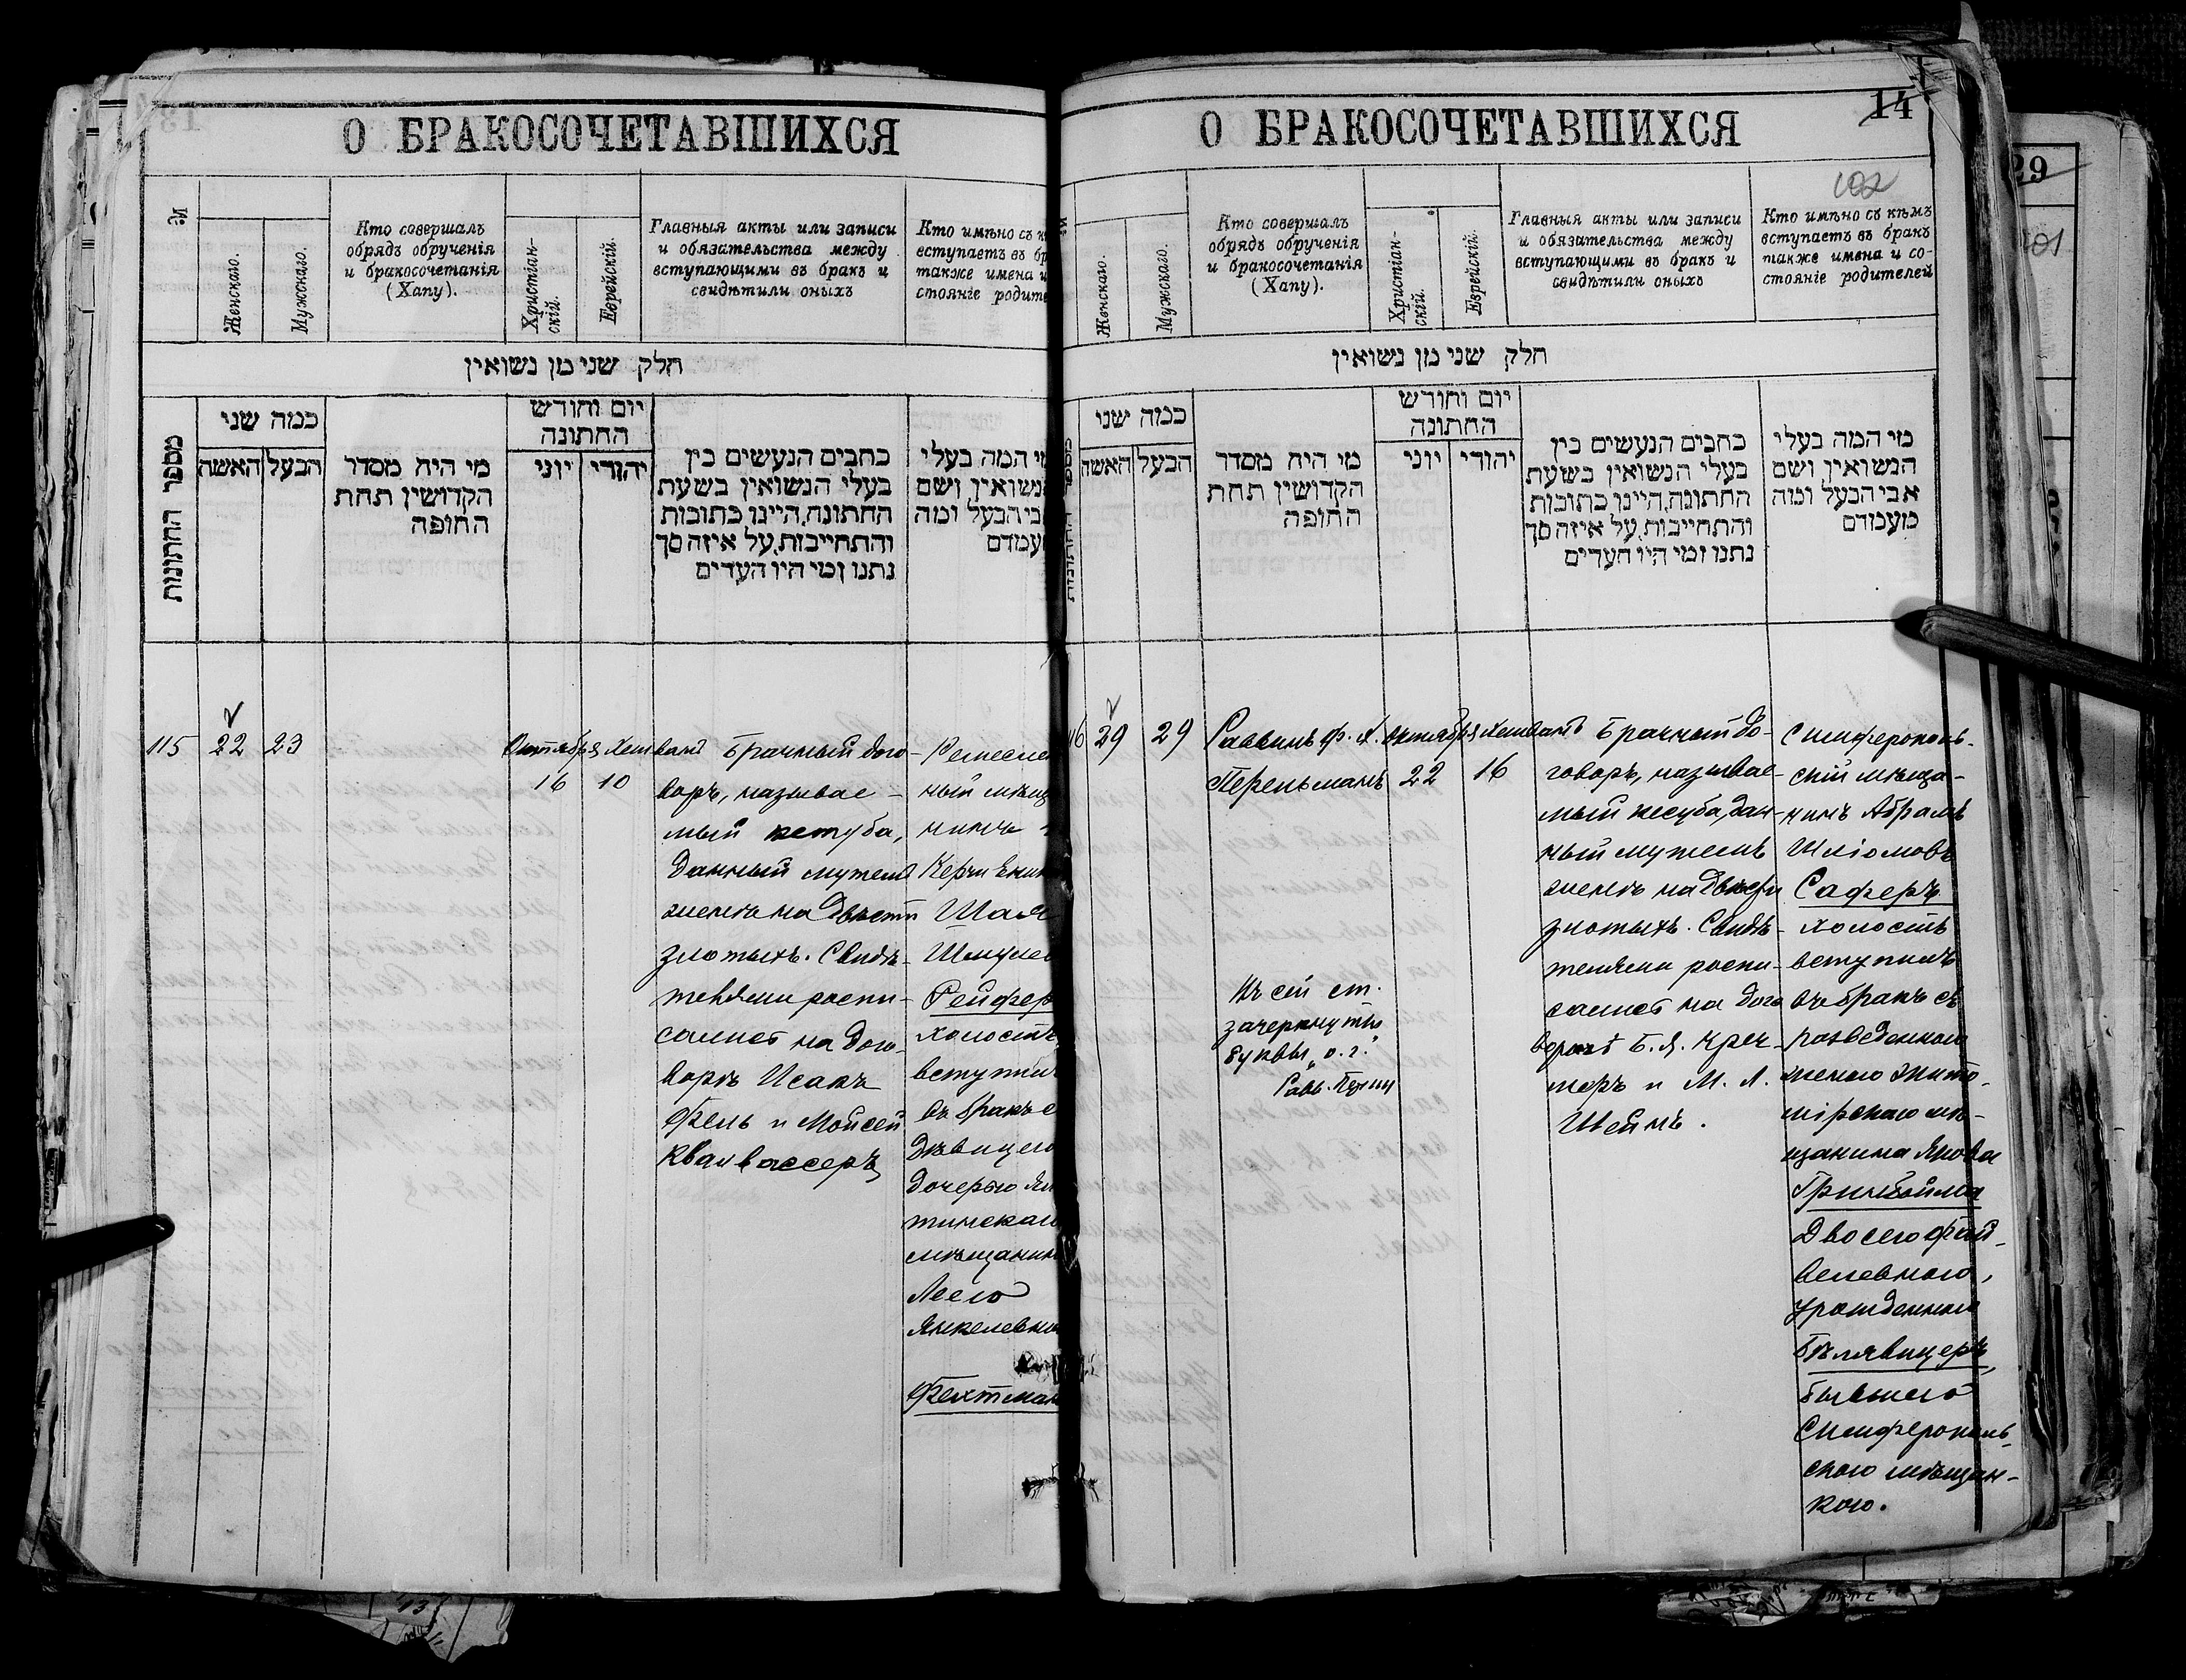 О БРАКОСОЧЕТАВШИХСЯ
№
Женскаго.
Мужскаго.
Кто совершалъ
обрядъ обрученія
и бракосочетанія
(Хапу).
Христіан-
скій.
Еврейскій.
Главныя акты или записи
и обязательства между
вступающими въ бракъ и
свидѣтили оныхъ
Кто имѣно съ
вступаетъ въ
также имена и
стояніе
חלק שני מן נשואין
מספר החתונות
כמה שני
האשה
הבעל
מי היה מסדר
הקדושין תחת
החופה
יום וחודש
החתונה
יוני
יהודי
כתבים הנעשים בין
בעלי הנשואין בשעת
החתונה, היינו כתובות
והתחייבות, על איזה סך
נתנו ומי היו העדים
המה בעלי
ושם
הבעל ומה
115
22
23
Октября Хешванъ
16 10
Брачный дого-
воръ, называе-
мый кетуба,
данный мужемъ
женѣ на двѣсти
злотыхъ. Свидѣ-
телями распи-
сались на дого-
ворѣ Исакъ
Фель и Мойсей
Квалвассеръ
ный
Шая
холостъ
въ бракъ
дѣвицею
дочерью
Лeeю
О БРАКОСОЧЕТАВШИХСЯ
14
102
Женскаго.
Мужскаго.
Кто совершалъ
обрядъ обрученія
и бракосочетанія
(Хапу).
Христіан-
скій.
Еврейскій.
Главныя акты или записи
и обязательства между
вступающими въ бракъ и
свидѣтили оныхъ
Кто имѣно съ кѣмъ
вступаетъ въ бракъ
также имена и со-
стояніе родителей
חלק שני מן נשואין
כמה שני
האשה
הבעל
מי היה מסדר
הקדושין תחת
החופה
יום וחודש
החתונה
יוני
יהודי
כתבים הנעשים בין
בעלי הנשואין בשעת
החתונה, היינו כתובות
והתחייבות, על איזה סך
נתנו ומי היו העדים
מי המה בעלי
הנשואין ושם
אבי הבעל ומה
מעמדם
29
29
Раввинъ Ф. Л.
Перельманъ
Къ сей ст.
зачеркнуты
буквы „о. г."
Октября Хешванъ
22 16
Брачный до-
говоръ, называе-
мый кесуба, дан-
ный мужемъ
женѣ на двѣсти
злотыхъ. Свидѣ-
телями распи-
сались на дого
ворѣ Б. Я. Креч-
меръ и М. Л.
Швейнъ.
Симферополь-
скій мѣща-
нинъ Абрамъ
Шліомовъ
Саферъ
холостъ
вступилъ
въ бракъ съ
разведенною
женою Жито-
мірскаго мѣ-
щанина Якова
Гринбойма
Двосею Фай-
велевною,
урожденною
Бѣлявцеръ,
бывшею
Симферополь-
скою мѣщан-
кою.
29
101